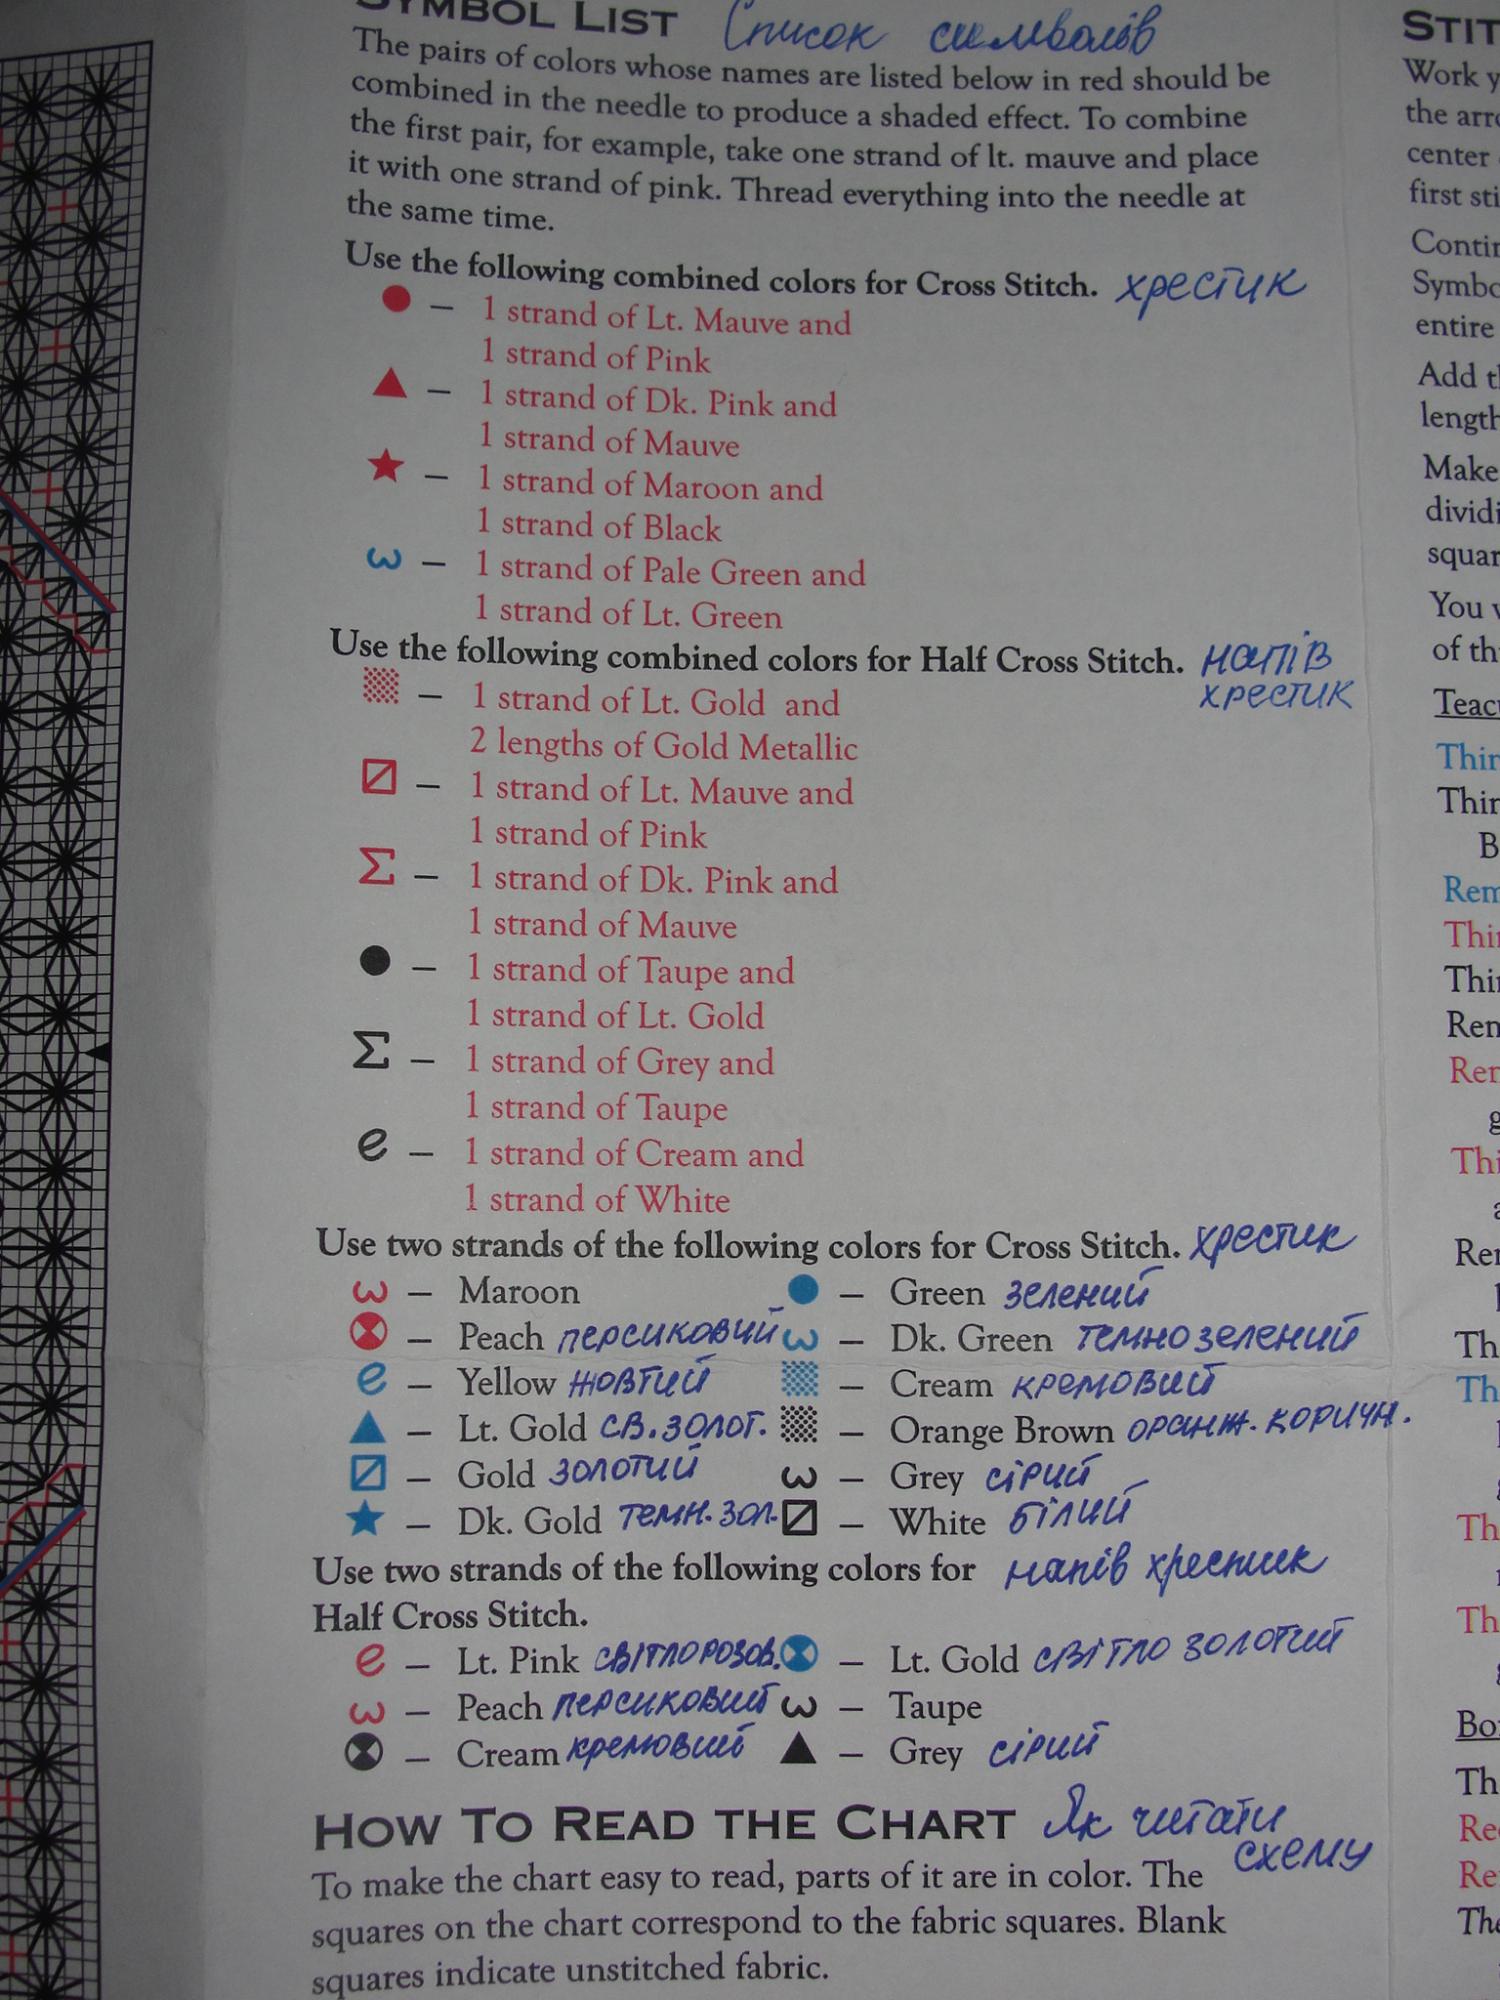 SYMBOL LIST Список символів
The pairs of colors whose names are listed below in red should be
combined in the needle to produce a shaded effect. To combine
the first pair, for example, take one strand of lt. mauve and place
it with one strand of pink. Thread everything into the needle at
the same time.
Use the following combined colors for Cross Stitch. хрестик
● – 1 strand of Lt. Mauve and
1 strand of Pink
▲ – 1 strand of Dk. Pink and
1 strand of Mauve
★ – 1 strand of Maroon and
1 strand of Black
ω – 1 strand of Pale Green and
1 strand of Lt. Green
Use the following combined colors for Half Cross Stitch. напів
хрестик
– 1 strand of Lt. Gold and
2 lengths of Gold Metallic
– 1 strand of Lt. Mauve and
1 strand of Pink
Σ – 1 strand of Dk. Pink and
1 strand of Mauve
● – 1 strand of Taupe and
1 strand of Lt. Gold
Σ – 1 strand of Grey and
1 strand of Taupe
e – 1 strand of Cream and
1 strand of White
Use two strands of the following colors for Cross Stitch. хрестик
ω – Maroon ● – Green зелений
– Peach персиковий ω – Dk. Green темнозелений
e – Yellow жовтий – Cream кремовий
▲ – Lt. Gold св. золот. – Orange Brown оранж. коричн.
– Gold золотий ω – Grey сірий
★ – Dk. Gold темн. зол. – White білий
Use two strands of the following colors for напів хрестик
Half Cross Stitch.
e – Lt. Pink світлорозов. – Lt. Gold світло золотий
ω – Peach персиковий ω – Taupe
– Cream кремовий ▲ – Grey сірий
HOW TO READ THE CHART Як читати
схему
To make the chart easy to read, parts of it are in color. The
squares on the chart correspond to the fabric squares. Blank
squares indicate unstitched fabric.
Work
the
center
first
entire
Add
Make
You
of